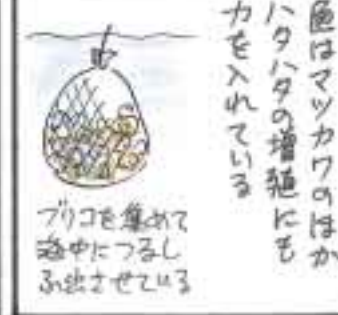 色はマツカワのほか
ハタハタの増殖にも
力を入れている
ブリコを集めて
海中につるし
ふ出させている